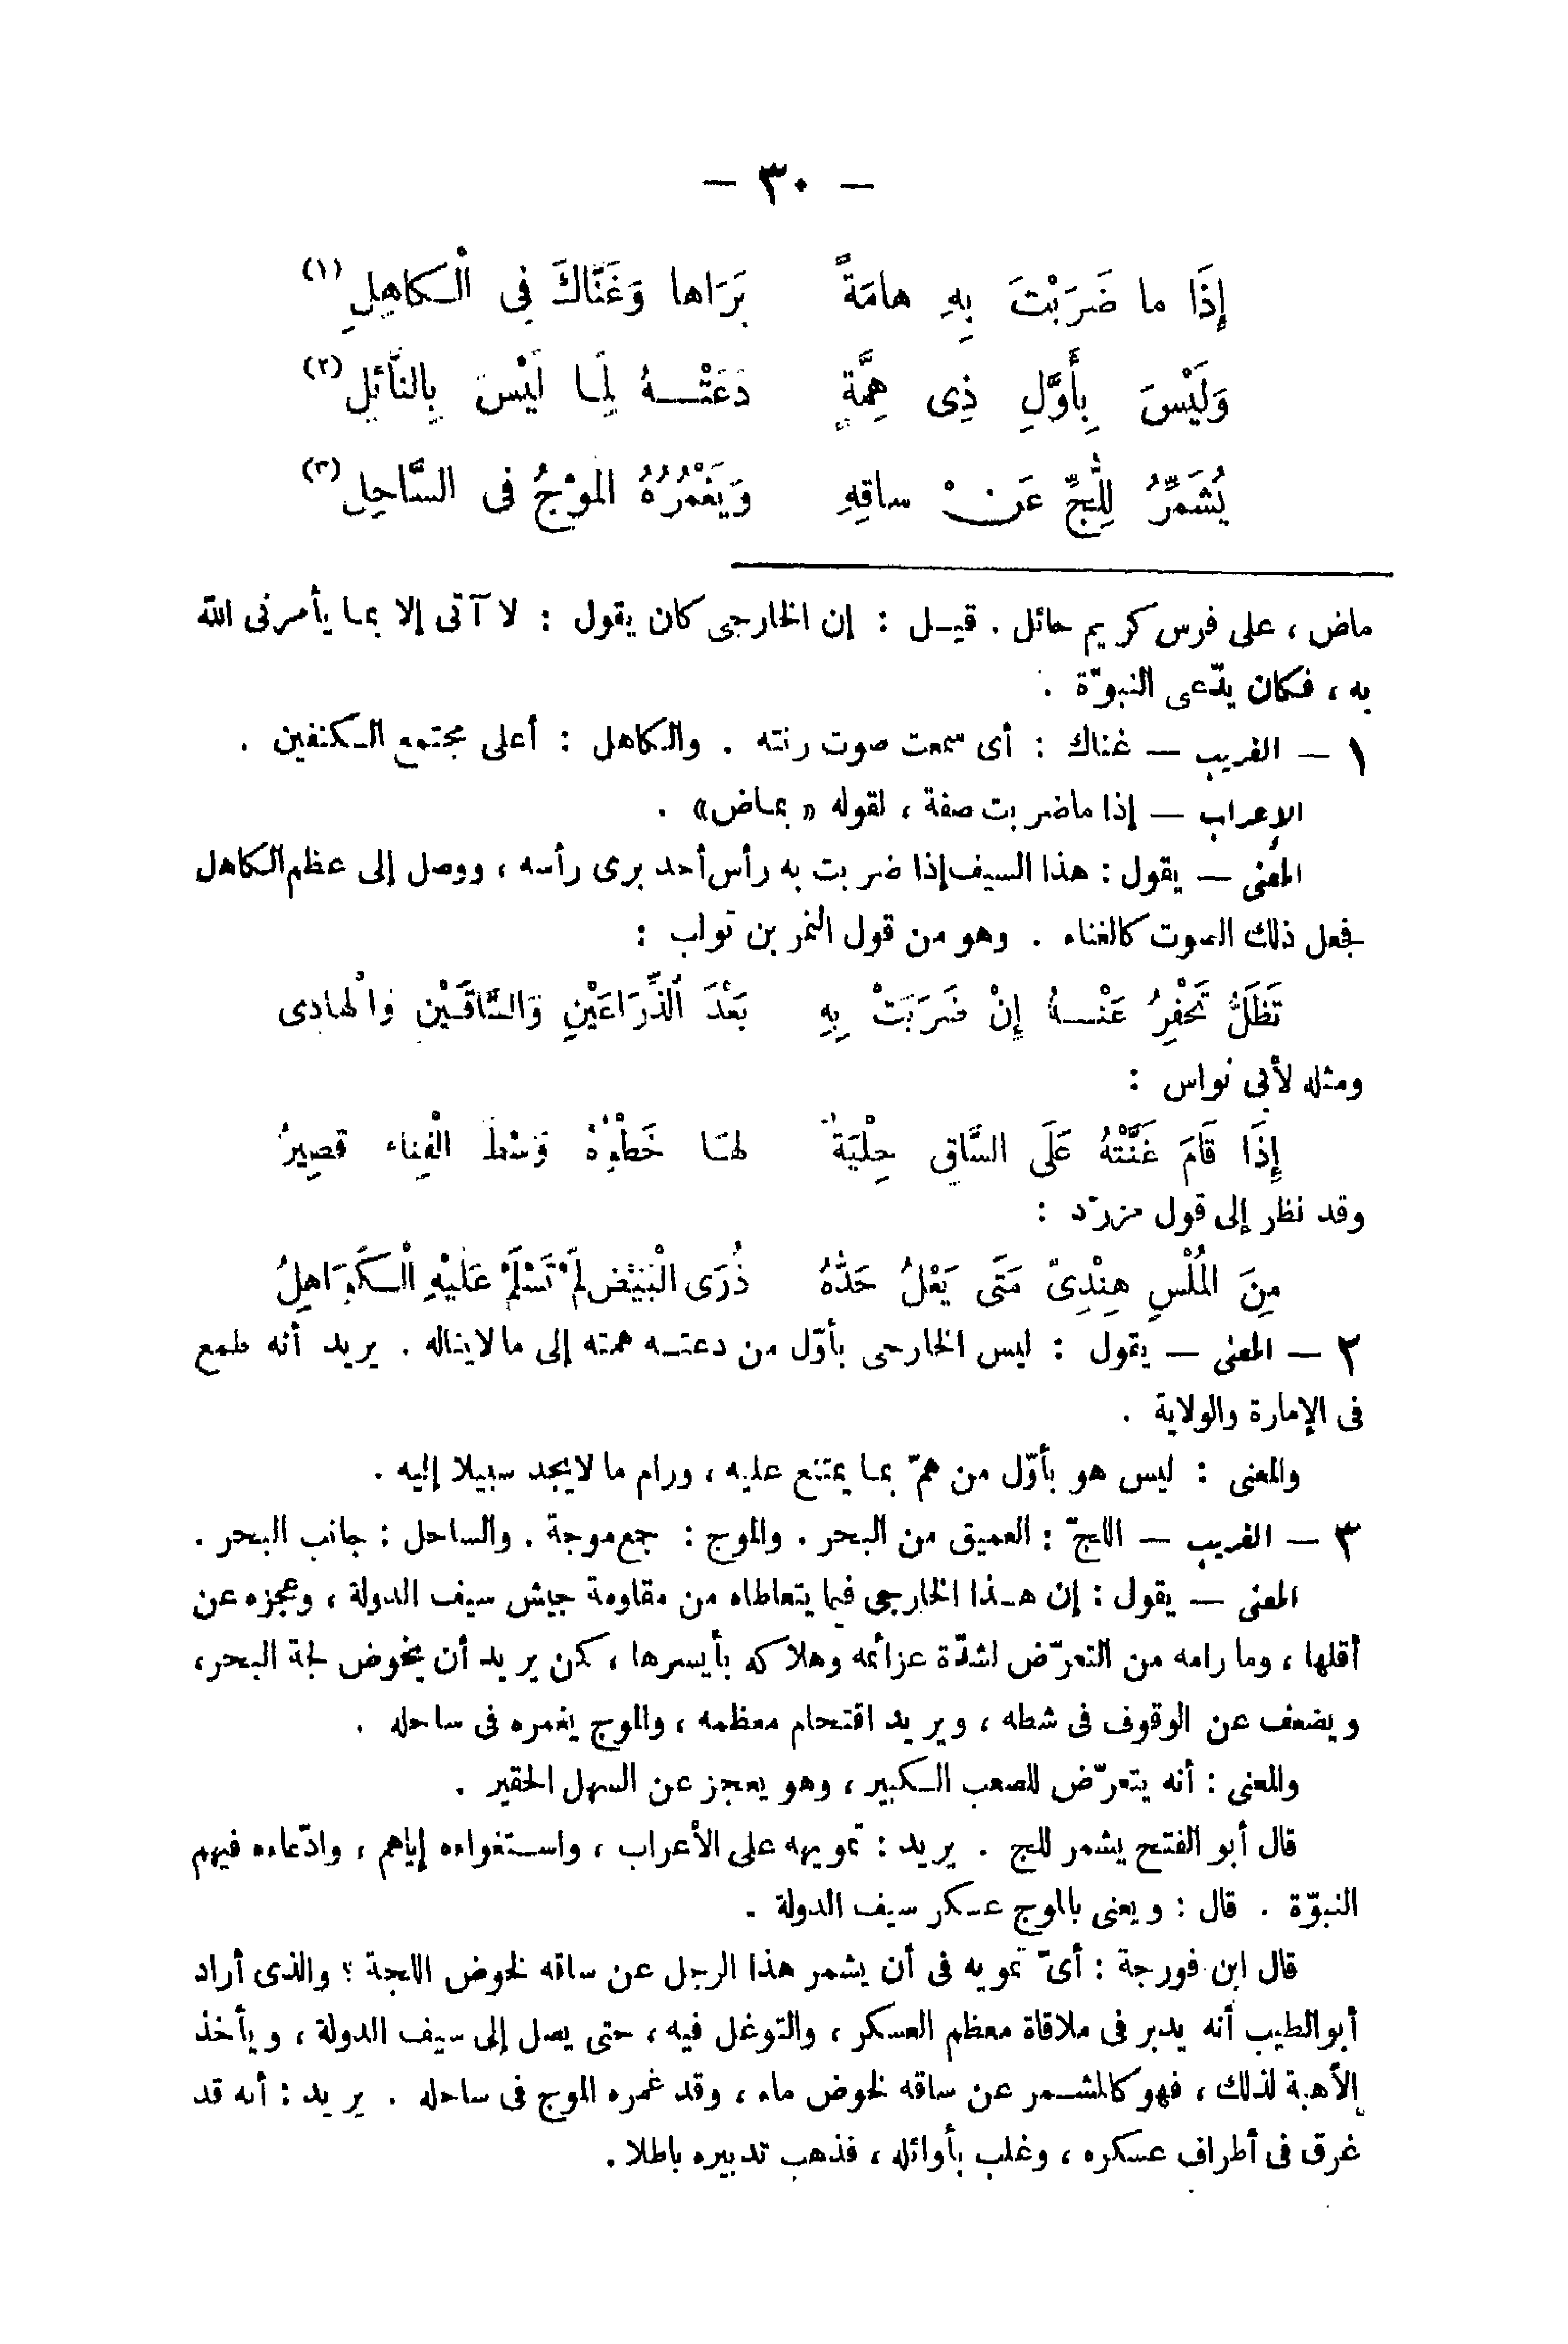 — ٣٠ —
إِذَا ما ضَرَبْتَ بِهِ هامَةً بَرَاها وَغَنَّاكَ فِي الْكاهِلِ (١)
وَلَيْسَ بِأَوَّلِ ذِى هِمَّةٍ دَعَتْهُ لِمَا لَيْسَ بِالنَّائِلِ (٢)
يُشَمِّرُ لِلُّجِّ عَنْ ساقِهِ وَيَغْمُرُهُ المَوْجُ فى السَّاحِلِ (٣)
ماض ، على فرس كريم حائل . قيل : إن الخارجى كان يقول : لا آتى إلا بما يأمرنى الله
به ، فكان يدّعى النبوّة .
١ — الغريب — غناك : أى سمعت صوت رنته . والكاهل : أعلى مجتمع الكتفين .
الإعراب — إذا ماضربت صفة ، لقوله « بماض» .
المعنى — يقول : هذا السيف إذا ضربت به رأس أحد برى رأسه ، ووصل إلى عظم الكاهل
فجعل ذلك الصوت كالغناء . وهو من قول النمر بن تولب :
تَظَلُّ تَحْفِرُ عَنْهُ إِنْ ضَرَبَتْ بِهِ بَعْدَ الذِّرَاعَيْنِ وَالسَّاقَيْنِ وَالْهادِى
ومثله لأبى نواس :
إِذَا قَامَ غَنَّتْهُ عَلَى السَّاقِ حِلْيَةٌ لهَا خَطْوُهُ وَسْطَ الْفِناء قصِيرُ
وقد نظر إلى قول مزرّد :
مِنَ المُلْسِ هِنْدِىّ مَتَى يَعْلُ حَدُّهُ ذُرَى الْبَيْضِ لَمْ تَسْلَمْ عَلَيْهِ الْكَوَاهِلُ
٢ — المعنى — يقول : ليس الخارجى بأوّل من دعته همته إلى ما لايناله . يريد أنه طمع
فى الإمارة والولاية .
والمعنى : ليس هو بأوّل من همّ بما يمتنع عليه ، ورام ما لايجد سبيلا إليه .
٣ — الغريب — اللجّ : العميق من البحر . والموج : جمع موجة . والساحل : جانب البحر .
المعنى — يقول : إن هذا الخارجى فيما يتعاطاه من مقاومة جيش سيف الدولة ، وعجزه عن
أقلها ، وما رامه من التعرّض لشدّة عزائمه وهلاكه بأيسرها ، كمن يريد أن يخوض لجة البحر،
ويضعف عن الوقوف فى شطه ، ويريد اقتحام معظمه ، والموج يغمره فى ساحله .
والمعنى : أنه يتعرّض للصعب الكبير ، وهو يعجز عن السهل الحقير .
قال أبو الفتح يشمر للج . يريد : تمويهه على الأعراب ، واستغواءه إياهم ، وادّعاءه فيهم
النبوّة . قال : ويعنى بالموج عسكر سيف الدولة .
قال ابن فورجة : أىّ تمويه فى أن يشمر هذا الرجل عن ساقه لخوض اللجة ؟ والذى أراد
أبو الطيب أنه يدبر فى ملاقاة معظم العسكر ، والتوغل فيه ، حتى يصل إلى سيف الدولة ، ويأخذ
الأهبة لذلك ، فهو كالمشمر عن ساقه لخوض ماء ، وقد غمره الموج فى ساحله . يريد : أنه قد
غرق فى أطراف عسكره ، وغلب بأوائله ، فذهب تدبيره باطلا .